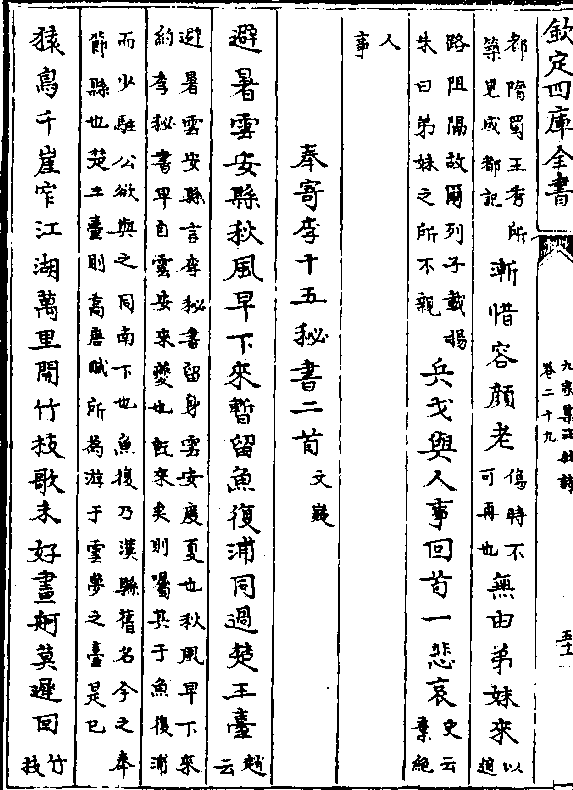 欽定四庫全書
九家集注杜詩
卷二十九
都隋蜀王秀所
築見成都記
漸惜容顏老
傷時不
可再也
無由弟妹來
以
道
路阻隔故爾列子載楊
朱曰弟妹之所不親
兵戈與人事回首一悲哀
史云
棄絶
人
事
奉寄李十五秘書二首 文嶷
避暑雲安縣秋風早下來暫留魚復浦同過楚王臺
趙
云
避暑雲安縣言李秘書留身雲安度夏也秋風早下來
約李秘書早自雲安來夔也既來矣則囑其于魚復浦
而少駐公欲與之同南下也魚復乃漢縣舊名今之奉
節縣也楚王臺則高唐賦所為游于雲夢之臺是已
猿鳥千崖窄江湖萬里開竹枝歌未好畫舸莫遲回
竹
枝